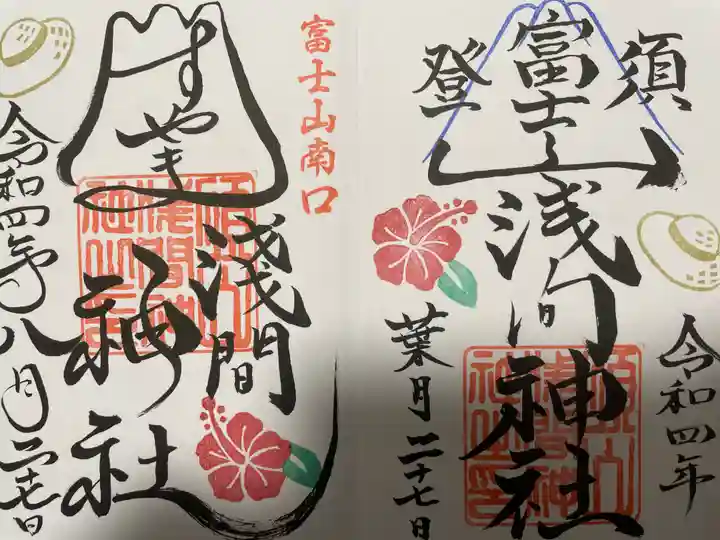 須
富士山
登
浅间神社
令和四年
葉月二十七日
富士山南口
すやま
淺間
神社
令和四年八月二十七日